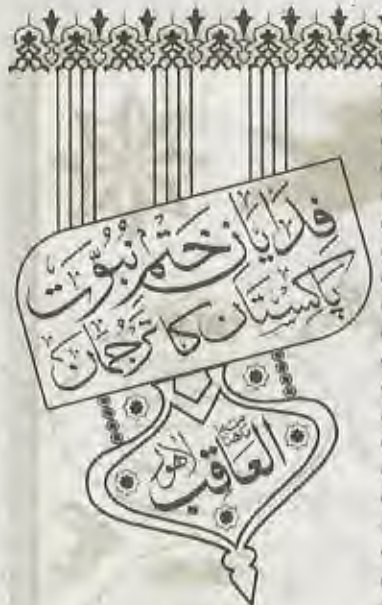 فِدَایَانِ ختمِ نُبُوّت
پاکِستان کا ترجمان
ماہنامہ العاقب لاہور